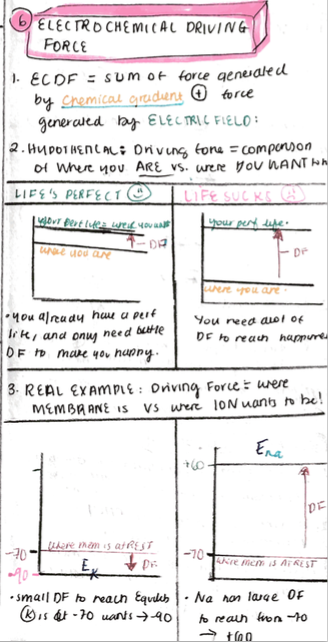 6 ELECTROCHEMICAL DRIVING
FORCE
1. ECDF = SUM OF force generated
by chemical gradient + force
generated by ELECTRIC FIELD:
2. HYPOTHETICAL: Driving force = comparison
of where you ARE vs. were YOU WANT to b
LIFE'S PERFECT
your perf life = were you want
DF
where you are
• you already have a perf
life, and only need little
DF to make you happy.
LIFE SUCKS
your perf life.
DF
were you are.
You need alot of
DF to reach happiness
3. REAL EXAMPLE: Driving Force = were
MEMBRANE is VS were ION wants to be!
-70
where mem is at REST
-90
EK
DF
• small DF to reach Equilib
K is at -70 wants → -90
+60
ENa
DF
-70
where mem is at REST
• Na has large DF
to reach from -70
→ +60